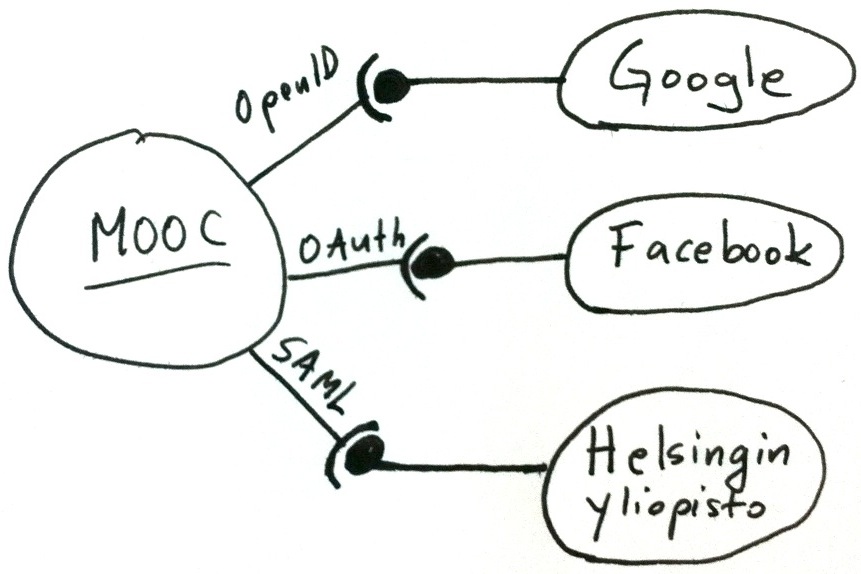 OpenID
Google
MOOC
OAuth
Facebook
SAML
Helsingin
yliopisto